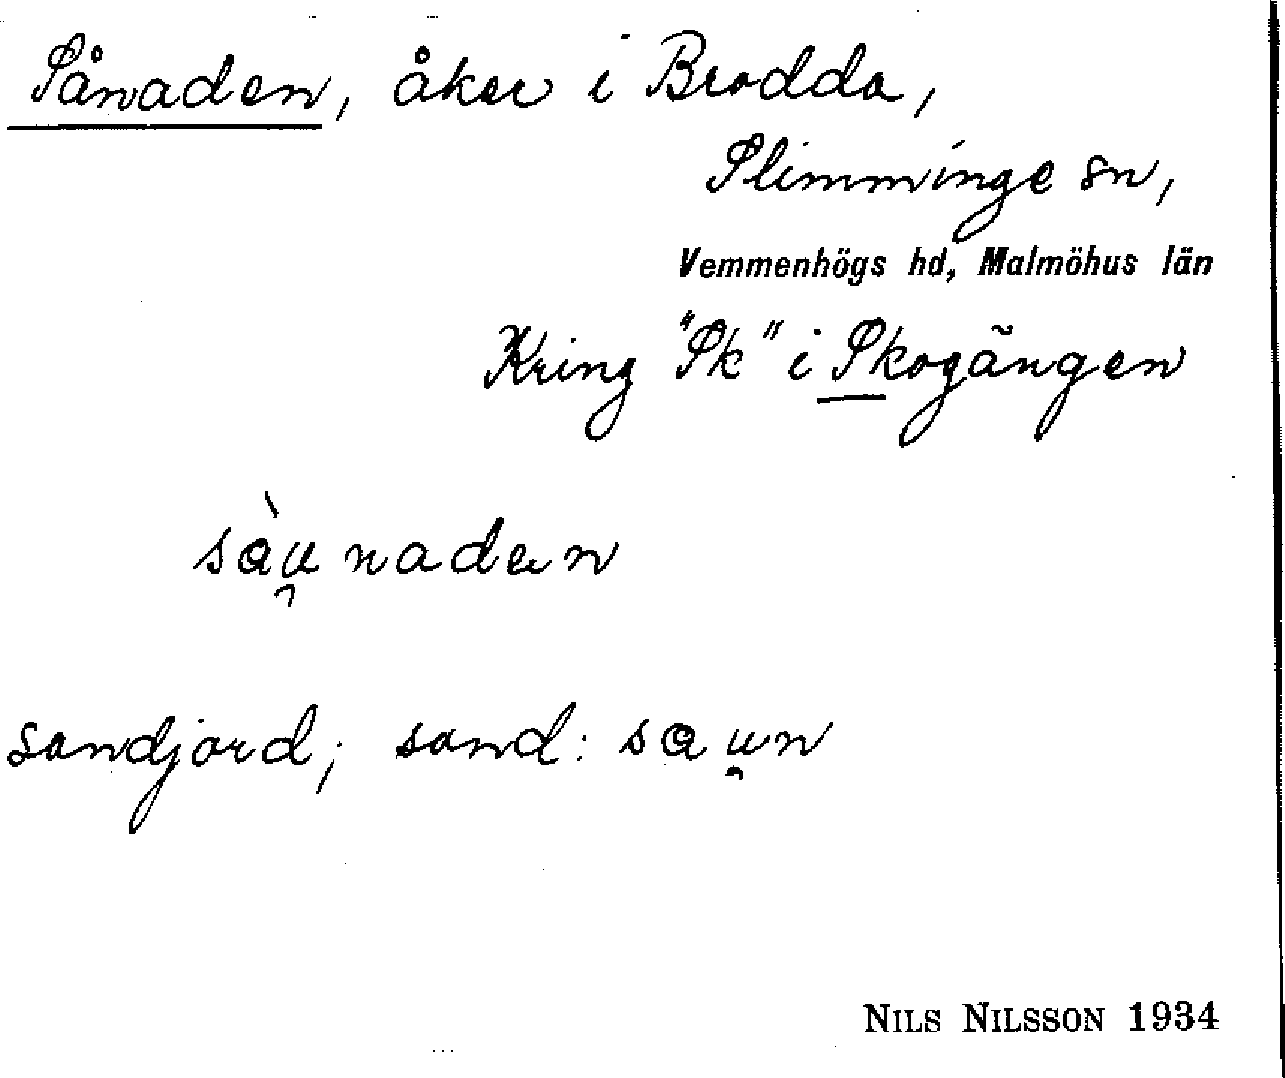 Sånaden, åker i Brodda,
Slimminge sn,
Vemmenhögs hd, Malmöhus län
Kring "Sk" i Skogängen
sàu̯naden
sandjord; sand: sau̯n
NILS NILSSON 1934